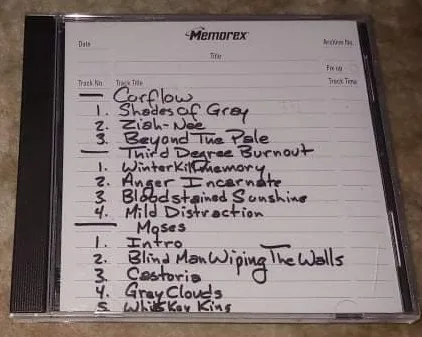 Memorex
Date
Archive No.
Title
Track No. Track Title Track Time
Corflow
1. Shades Of Gray
2. Ziah-Nee
3. Beyond The Pale
Third Degree Burnout
1. Winter Kill memory
2. Anger Incarnate
3 Bloodstained Sunshine
4. Mild Distraction
Moses
1. Intro
2. Blind Man Wiping The Walls
3. Castoria
4. Gray Clouds
5. Whiskey King